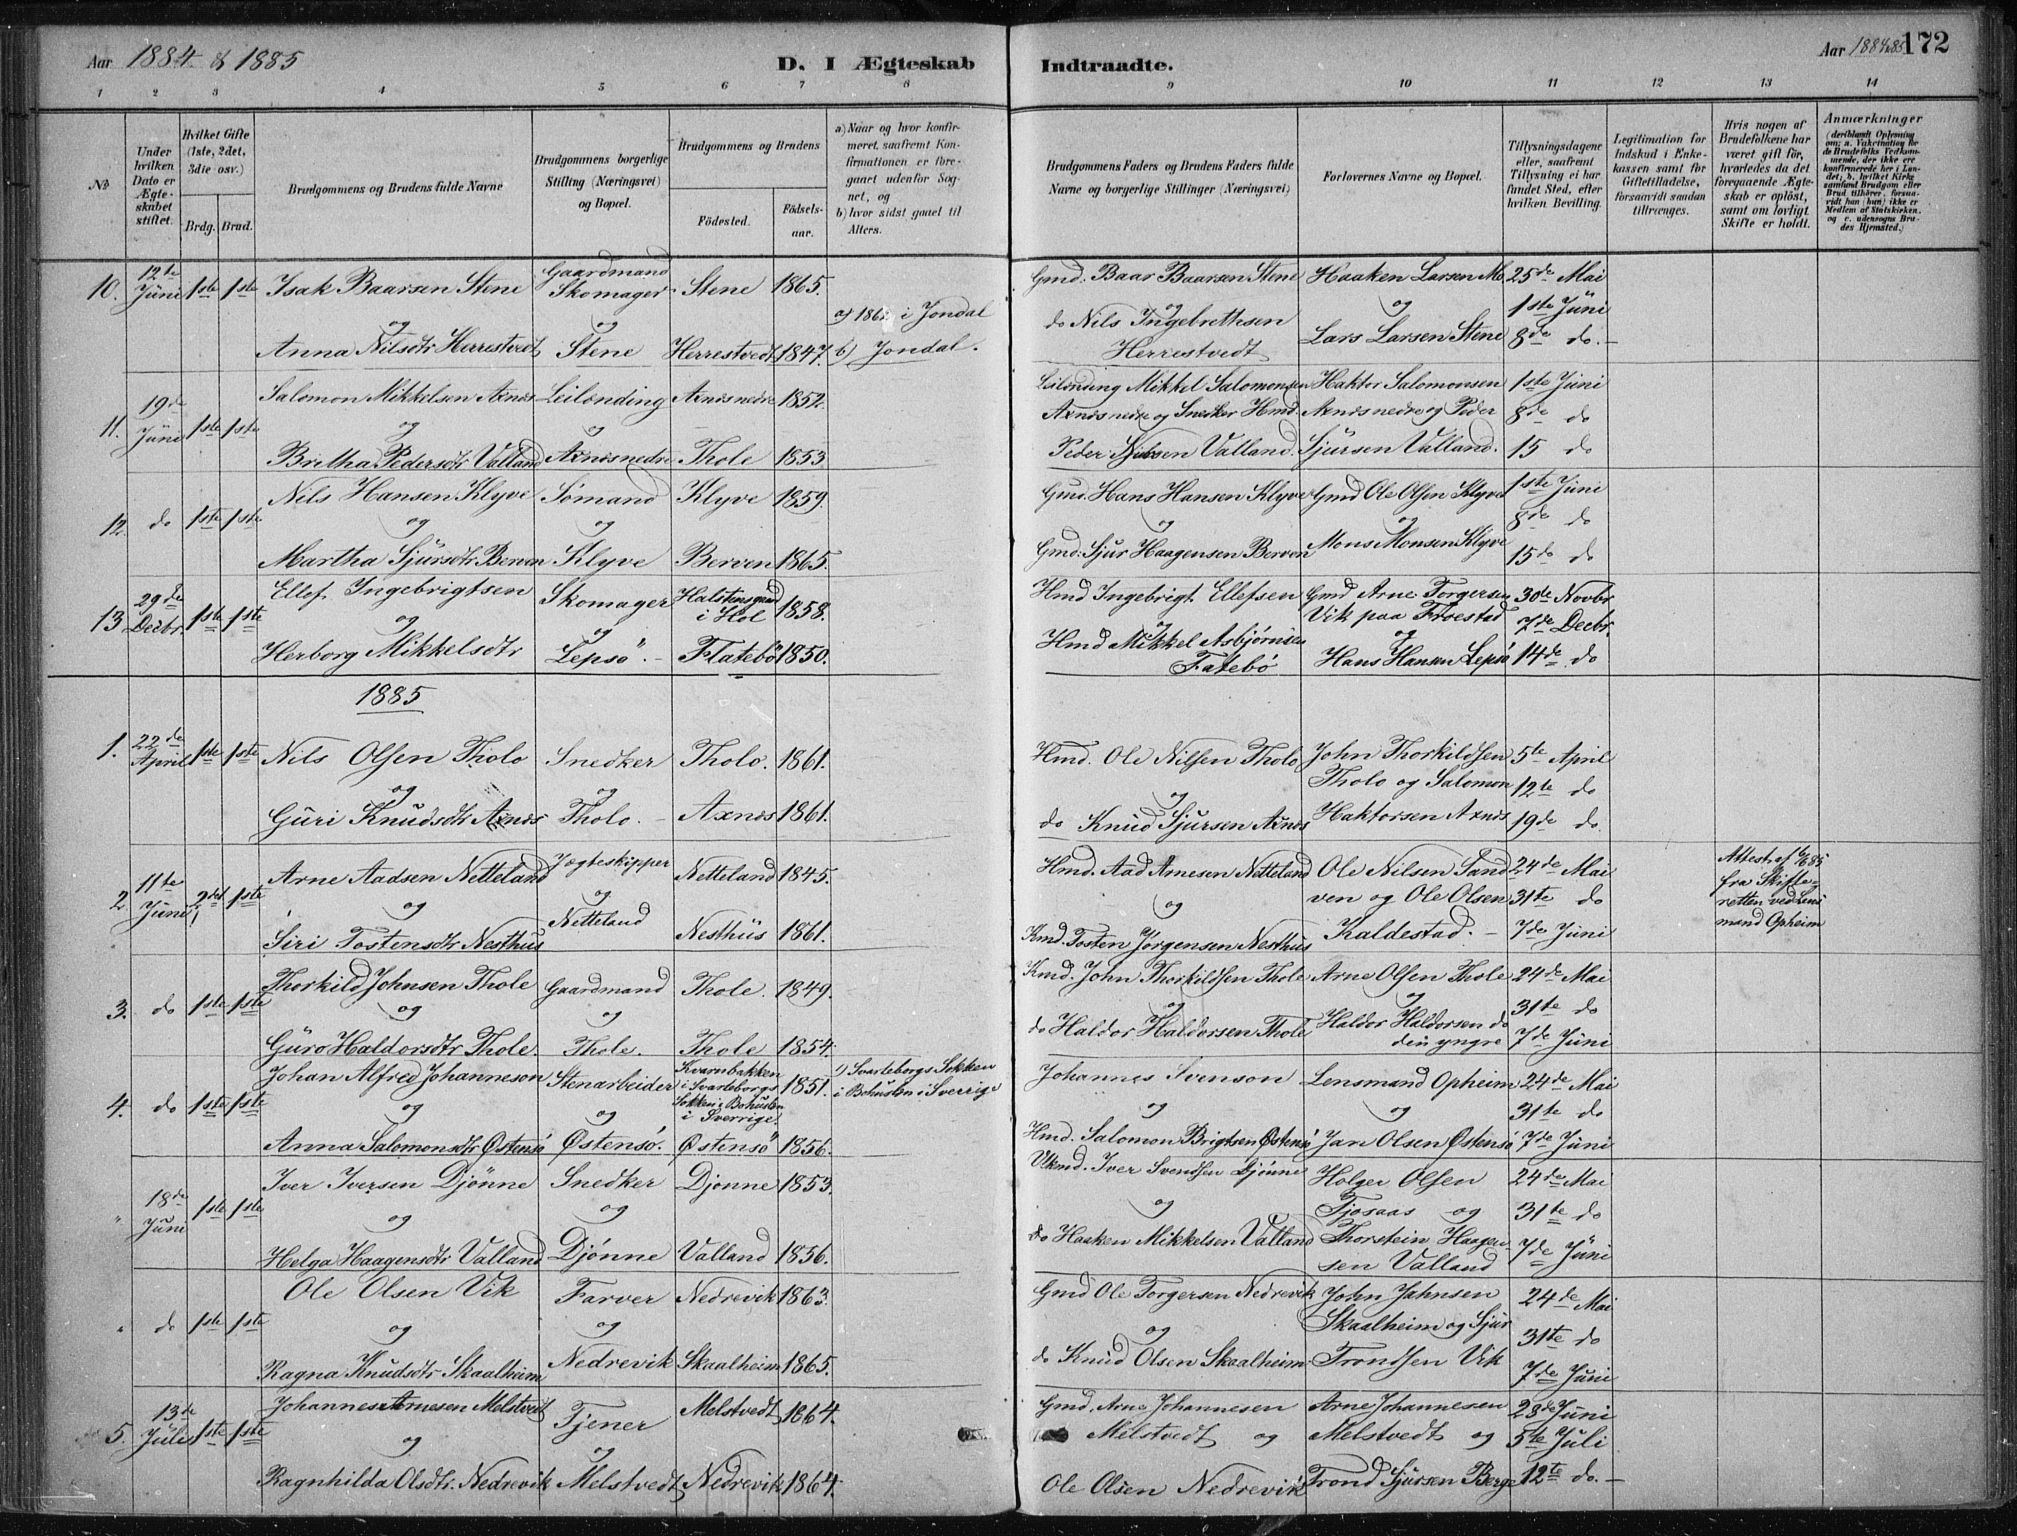 Aar 1884 & 1885
D. I Ægteskab Indtraadte.
Aar 1884&85
172
1 2 3 4 5 6 7 8 9 10 11 12 13 14
No
Under hvilken Dato er Ægteskabet stiftet.
Hvilket Gifte (1ste, 2det, 3die osv.)
Brdg. Brud.
Brudgommens og Brudens fulde Navne
Brudgommens borgerlige Stilling (Næringsvei) og Bopæl.
Brudgommens og Brudens
Födested.
Födselsaar.
a) Naar og hvor konfirmeret, saafremt Konfirmationen er foregaaet udenfor Sognet, og
b) hvor sidst gaaet til Alters.
Brudgommens Faders og Brudens Faders fulde Navne og borgerlige Stillinger (Næringsvei)
Forlovernes Navne og Bopæl.
Tillysningsdagene eller, saafremt Tillysning ei har fundet Sted, efter hvilken Bevilling.
Legitimation for Indskud i Enkekassen samt for Giftetilladelse, forsaavidt saadan tiltrænges.
Hvis nogen af Brudefolkene har været gift før, hvorledes da det foregaaende Ægteskab er oplöst, samt om lovligt Skifte er holdt.
Anmærkninger
(deriblandt Oplysning om: a. Vakcination for de Brudefolks Vedkommende, der ikke ere konfirmerede her i Landet; b. hvilket Kirkesamfund Brudgom eller Brud tilhörer, forsaavidt han (hun) ikke er Medlem af Statskirken, og c. udensogns Brudes Hjemsted.)
10. 12te Juni 1ste 1ste Isak Baarsen Stene Gaardmand Skomager Stene 1865.
og og a) 186 i Jondal
Anna Nilsdtr Herrestvedt Stene Herrestvedt 1847. b) Jondal.
Gmd. Baar Baarsen Stene Haaken Larsen M. 25de Mai
og og 1ste Juni
do Nils Ingebrethsen Herrestvedt Lars Larsen Stene 8de do.
11. 19de Juni 1ste 1ste Salomon Mikkelsen Axnes Leilænding Axnes nedre 1852.
og og
Bretha Pedersdtr Valland Axnes nedre Thole 1853
Leilænding Mikkel Salomonsen Haktor Salomonsen 1ste Juni
Axnes nedre og Snedker Hmd. Axnes nedre og Peder 8de do
Peder Valland. Sjursen Valland. 15 do
12. do 1ste 1ste Nils Hansen Klyve Sømand Klyve 1859.
og og
Martha Sjursdtr Berven Klyve Berven 1865.
Gmd. Hans Hansen Klyve Gmd Ole Olsen Klyve 1ste Juni
og og 8de do
Gmd. Sjur Haagensen Berven Mons Monsen Klyve 15de do
13 29de Decbr. 1ste 1ste Ellef Ingebrigtsen Skomager Halstensgaard i Hol 1858.
og og
Herborg Mikkelsdtr Lepsö. Flatebö 1850.
Hmd Ingebrigt Ellefsen Gmd Arne Torgersen 30te Novbr
og Vik paa Froestad 7de Decbr.
Hmd Mikkel Asbjørnsen og
Fatebö Hans Hansen Lepsö 14de do
1885
1. 22de April 1ste 1ste Nils Olsen Tholo Snedker Tholo. 1861.
og og
Guri Knudsdtr Axnes Tholo. Axnes 1861.
Hmd. Ole Nilsen Tholo John Thorkildsen 5te April
og Tholo og Salomon 12te do
do Knud Sjursen Axnes Haktorsen Axnes 19de do
2. 11te Juni 2det 1ste Arne Aadsen Netteland Jægteskipper Netteland 1845.
og og
Siri Tostensdtr Nesthus Netteland Nesthus 1861.
Hmd. Aad Arnesen Netteland Ole Nilsen Sandven og Ole Olsen Kaldestad. 24de Mai
og 31te do
Kmd. Tosten Jørgensen Nesthus 7de Juni
Attest af 6/6 85 fra Skifteretten ved Lensmand Opheim
3. do 1ste 1ste Thorkild Johnsen Thole Gaardmand Thole. 1849.
og og
Guro Haldorsdtr Thole. Thole. Thole 1854.
Kmd. John Thorkildsen Thole Arne Olsen Thole 24de Mai
og og 31te do
do Haldor Haldorsen Thole Haldor Haldorsen do den yngre 7de Juni
4. do 1ste 1ste Johan Alfred Johanneson Stenarbeider Kvarnbakken i Svarteborgs Sokken i Bohuslen i Sverrige 1851. Svarteborgs Sokken i Bohuslen i Sverrige
og og
Anna Salomonsdtr Østensö Østensö. Østensö 1856.
Johannes Svenson Lensmand Opheim 24de Mai
og og 31te do
Hmd. Salomon Brigtsen Østensö Jan Olsen Østensö 7de Juni
" 18de Juni 1ste 1ste Iver Iversen Djönne Snedker Djonne 1853.
og og
Helga Haagensdtr Valland Djönne Valland 1856.
Iver Svendsen Djönne Holger Olsen 24de Mai
og Tjosaas og 31te do
do Haaken Mikkelsen Valland Thorstein Haagensen Valland 7de Juni
" do 1ste 1ste Ole Olsen Vik Farver Nedrevik 1863.
og og
Ragna Knudsdtr Skaalheim Nedrevik Skaalheim 1865.
Gmd Ole Torgersen Nedrevik John Johnsen 24de Mai
og Skaalheim og Sjur 31te do
do Knud Olsen Skaalheim Trondsen Vik 7de Juni
5. 13de Juli 1ste 1ste Johannes Arnesen Melstvedt Tjener Melstvedt 1864.
og og
Ragnhilda Olsdtr. Nedrevik Melstvedt Nedrevik 1864.
Gmd. Arne Johannesen Arne Johannesen 28de Juni
Melstvedt og Melstvedt og 5te Juli
Ole Olsen Nedrevik Trond Sjursen Berge 12te do.